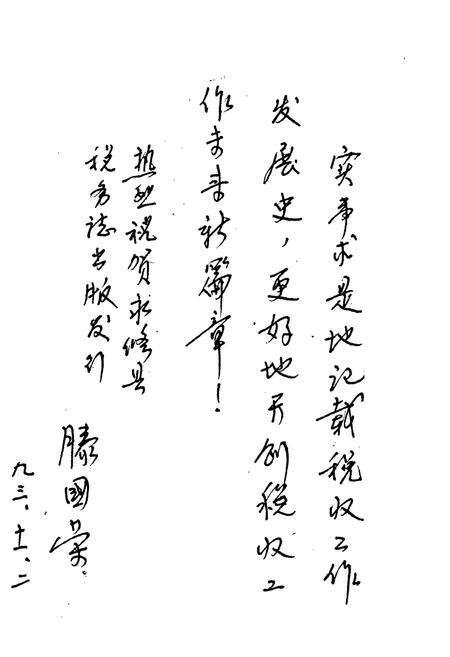 实事求是地记载税收工作
发展史，更好地开创税收工
作未来新篇章！
热烈祝贺永修县
税务誌出版发行
滕國荣
九三、十一、二